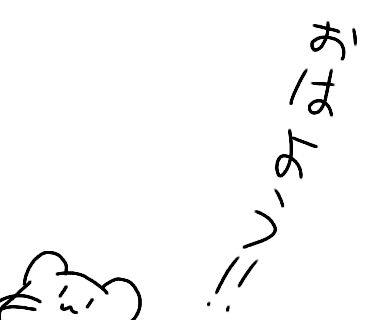 おはよう!!